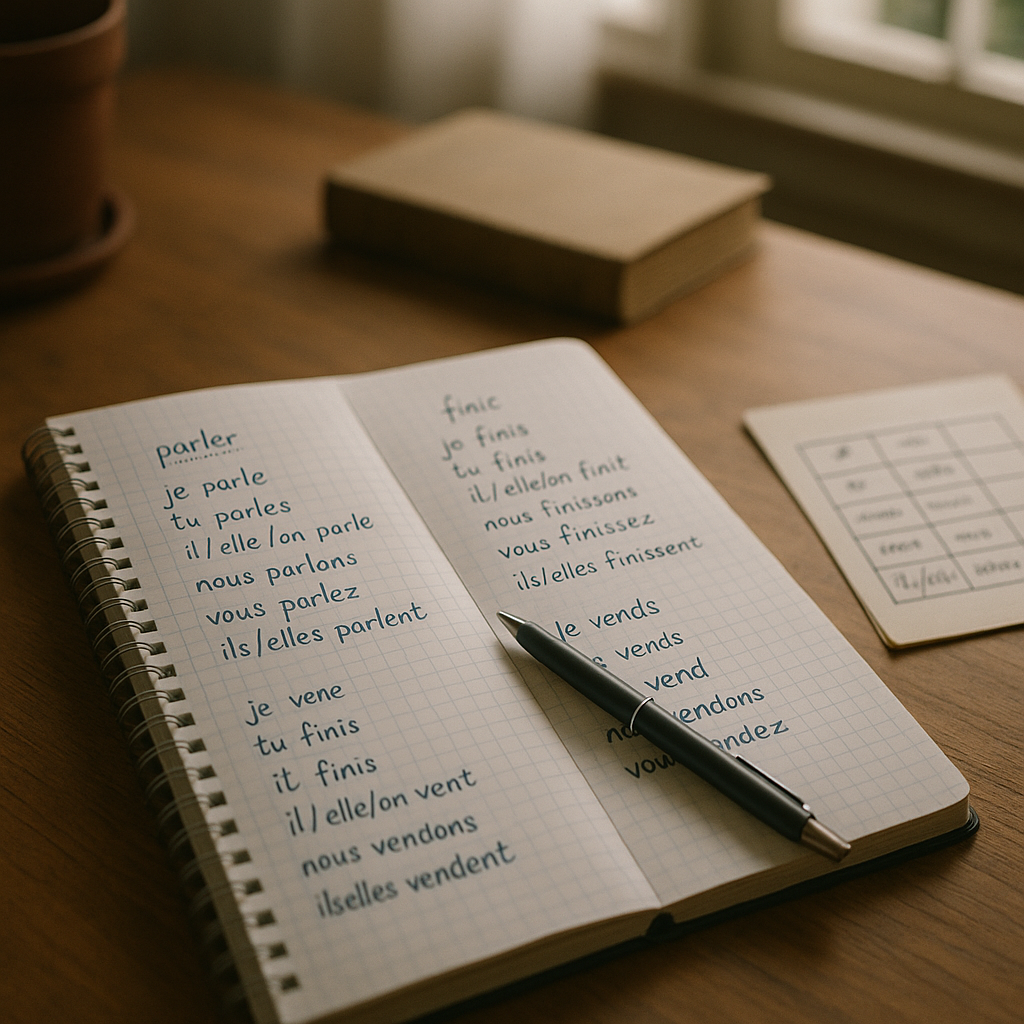 parler
je parle
tu parles
il/elle/on parle
nous parlons
vous parlez
ils/elles parlent
je vene
tu finis
it finis
il/elle/on vent
nous vendons
ilselles vendent
finic
jo finis
tu finis
il/elle/on finit
nous finissons
vous finissez
ils/elles finissent
je vends
vends
vend
vendons